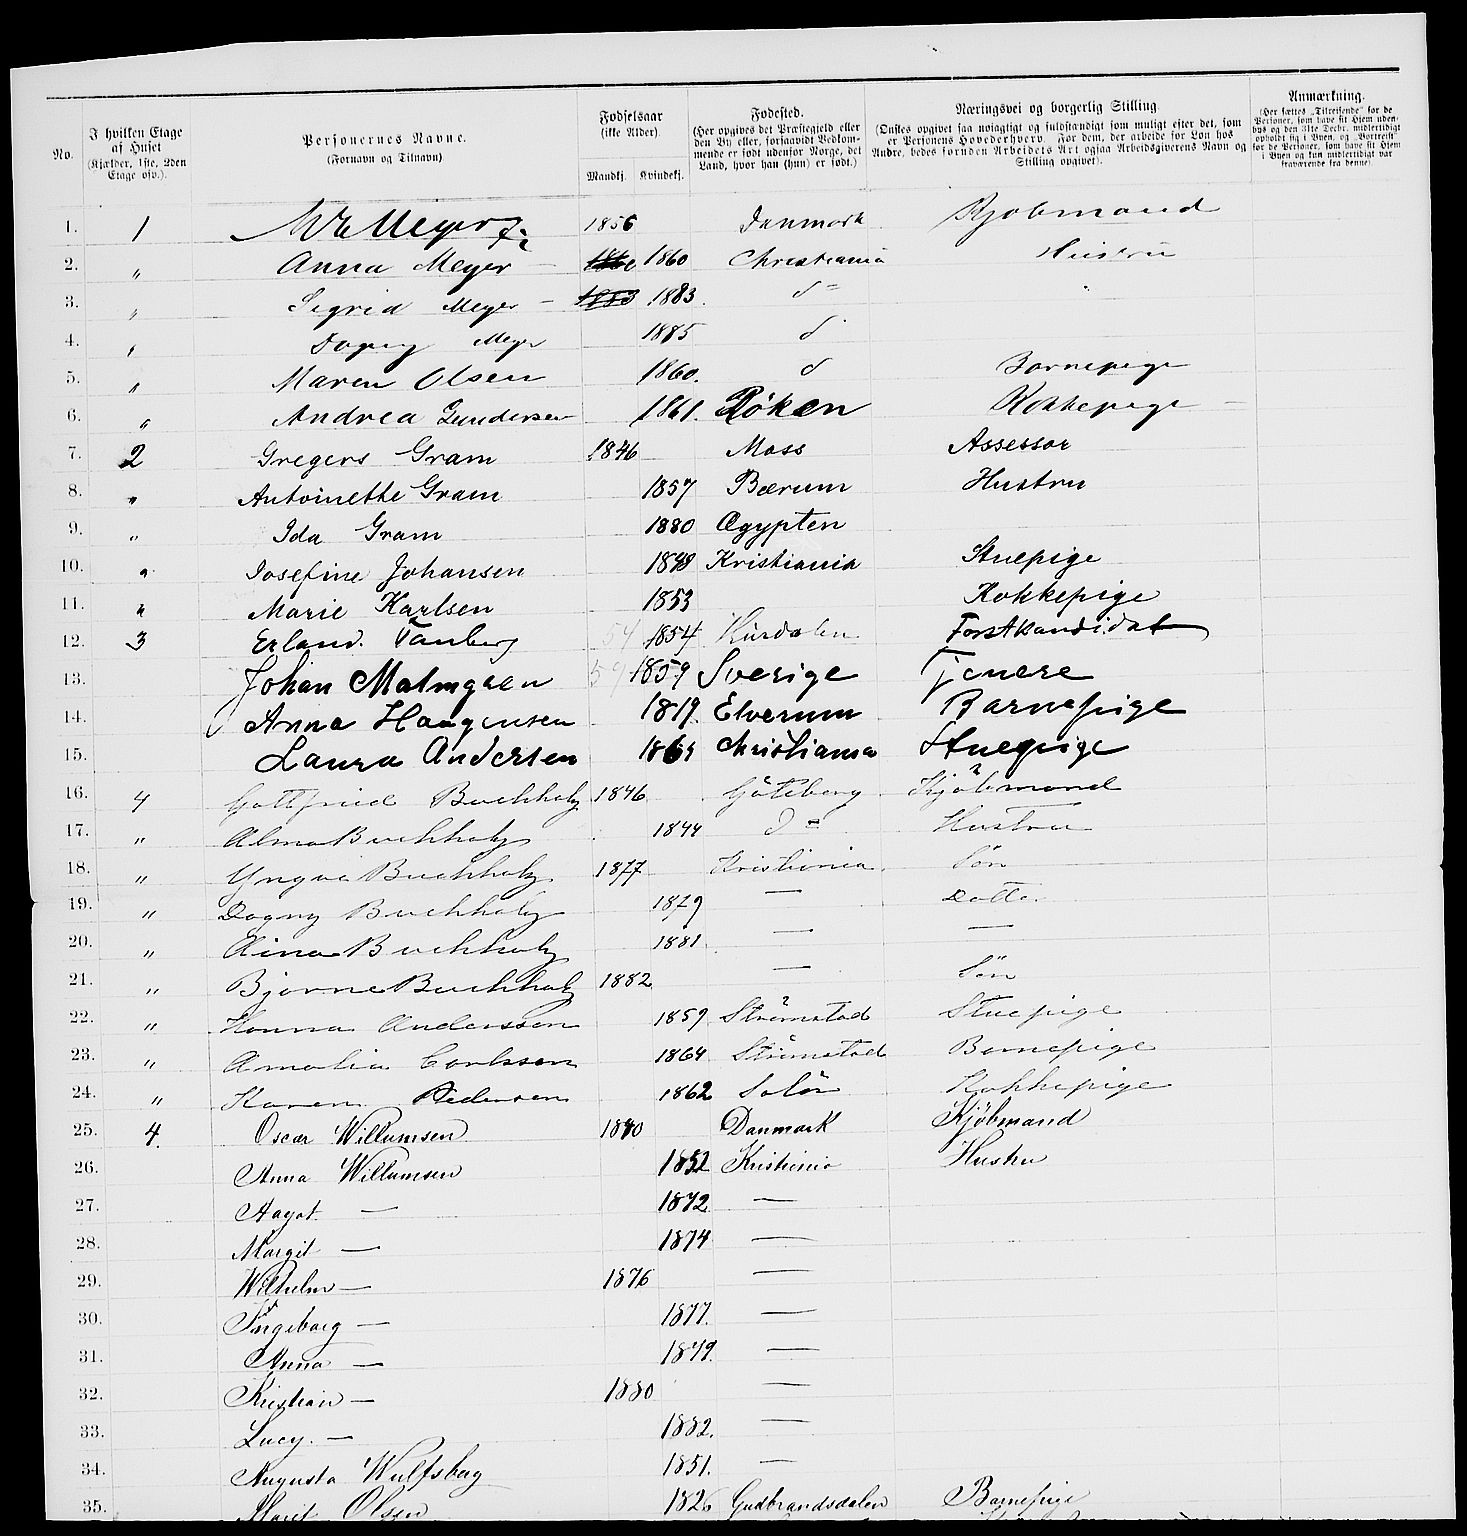 No. I hvilken Etage af Huset (Kjælder, 1ste, 2den Etage osv.). Personernes Navne. (Fornavn og Tilnavn). Fødselsaar (ikke Alder). Mandkj. Kvindekj. Fødested. (Her opgives det Præstegjeld eller den By eller, forsaavidt Vedkommende er født udenfor Norge, det Land, hvor han (hun) er født.) Næringsvei og borgerlig Stilling. (Ønskes opgivet saa nøiagtigt og fuldstændigt som muligt efter det, som er Personens Hovederhverv. For dem, der arbeide for Løn hos Andre, bedes foruden Arbeidets Art ogsaa Arbeidsgiverens Navn og Stilling opgivet). Anmærkning. (Her sættes „Tilreisende" for de Personer, som have sit Hjem udenbys og den 31te Decbr. midlertidigt opholdt sig i Byen, og „Bortreist" for de Personer, som have sit Hjem i Byen og kun midlertidigt var fraværende fra denne).
1. 1 Meyer 1856 Danmark Kjøbmand
2. " Anna Meyer 1860 Christiania Hustru
3. " Sigrid Meyer 1883 1883. do
4. " Dagny Meyer 1885 d
5. " Maren Olsen 1860. d Barnepige
6. " Andrea Gundersen 1861. Röken Kokkepige
7. 2 Gregers Gram 1846 Moss Assessor
8. " Antoinette Gram 1857 Bærum Hustru
9. " Ida Gram 1880 Ægypten
10. " Josefine Johansen 1848 Kristiania Stuepige
11. " Marie Karlsen 1853 Kokkepige
12. 3 Erland. Tanberg 54 1854 Hurdalen Forstkandidat
13. Johan Malmgren 59 1859 Sverige Tjenere
14. Anna Haagensen 1819. Elverum Barnepige
15. Laura Andersen 1864 Christiania Stuepige
16. 4 Gottfried Buchholz 1846 Göteborg Kjöbmand
17. " Alma Buchholz 1844 do Hustru
18. " Yngve Buchholz 1877 Kristiania. Sön
19. " Dagny Buchholz 1879 — Datter
20. " Aina Buchholz 1881. — —
21. " Bjarne Buchholz 1882 — Sön
22. " Hanna Andersson 1859 Strömstad Stuepige
23. " Amalia Carlsson 1864 Strömstad Barnepige
24. " Karen Pedersen 1862 Solör Kokkepige
25. 4. Oscar Willumsen 1840 Danmark Kjöbmand
26. Anna Willumsen 1852 Kristiania Hustru
27. Aagot. — 1872 —
28. Margit — 1874 —
29. Wilhelm — 1876 —
30. Ingeborg — 1877. —
31. Anna — 1879. —
32. Kristian — 1880 —
33. Lucy. — 1882. —
34. Augusta Wulfsberg 1851. —
35. Marit Olsen 1826 Gudbrandsdalen Barnepige